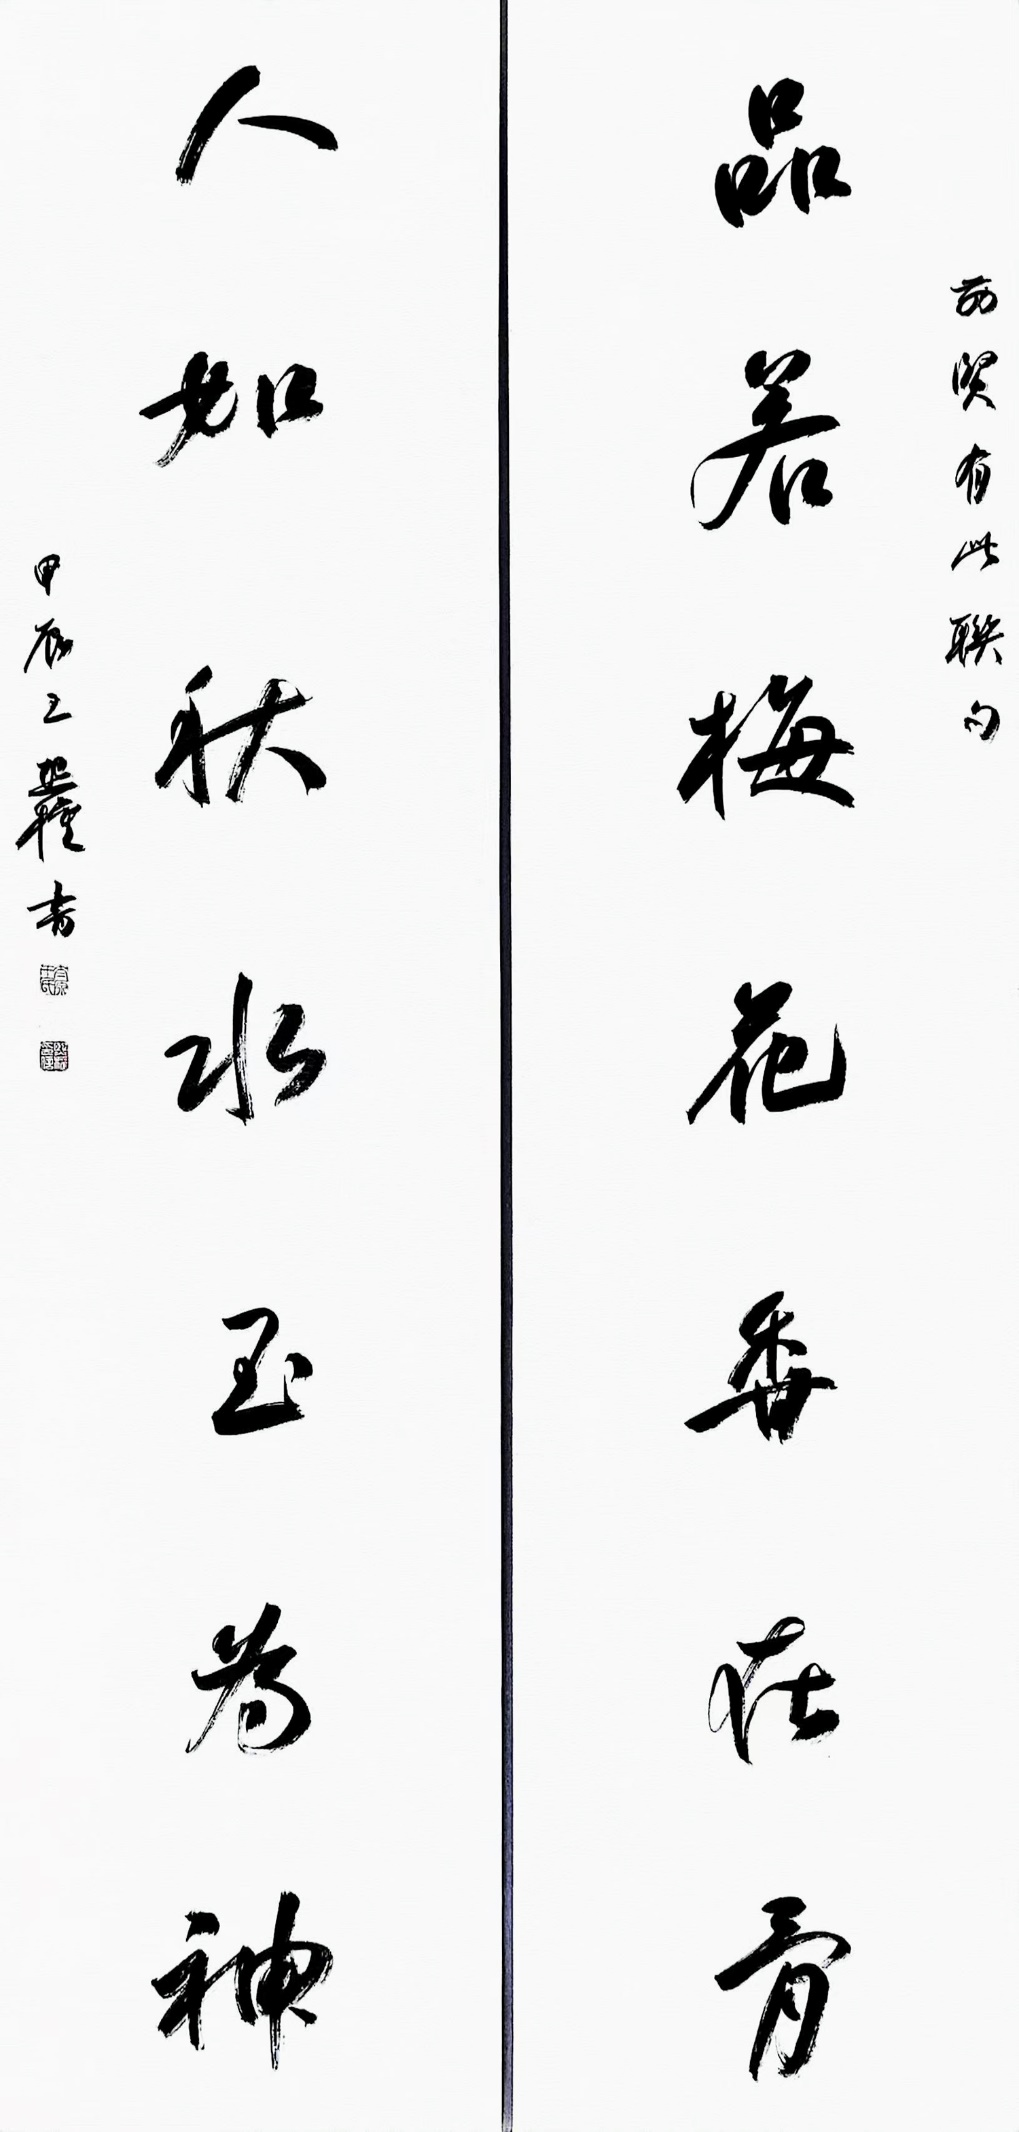 前贤有此联句
品若梅花香在骨
人如秋水玉为神
甲辰王
书